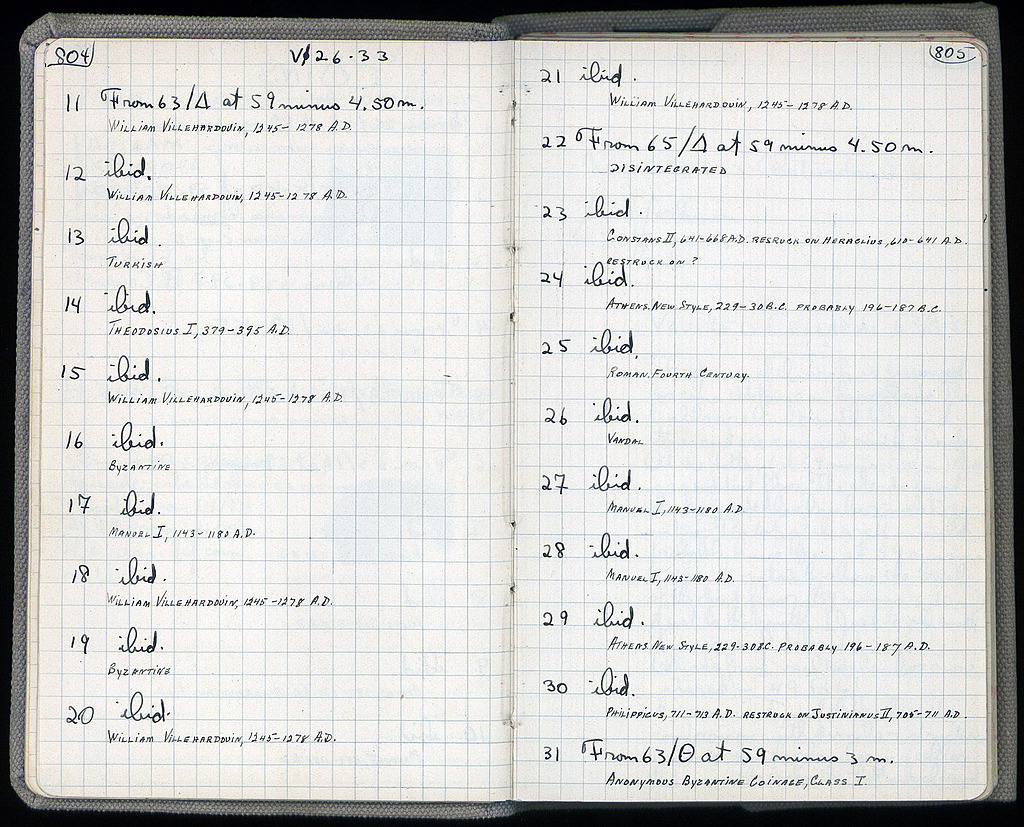 804
V 26·33
11 From 63/Δ at 59 minus 4.50 m.
William Villehardouin, 1245-1278 A.D.
12 ibid.
William Villehardouin, 1245-1278 A.D.
13 ibid.
Turkish
14 ibid.
Theodosius I, 379-395 A.D.
15 ibid.
William Villehardouin, 1245-1278 A.D.
16 ibid.
Byzantine
17 ibid.
Manuel I, 1143-1180 A.D.
18 ibid.
William Villehardouin, 1245-1278 A.D.
19 ibid.
Byzantine
20 ibid.
William Villehardouin, 1245-1278 A.D.
805
21 ibid.
William Villehardouin, 1245-1278 A.D.
22 From 65/Δ at 59 minus 4.50 m.
Disintegrated
23 ibid.
Constans II, 641-668 A.D. resruck on Heraclius, 610-641 A.D.
restruck on ?
24 ibid.
Athens. New Style, 229-30 B.C. probably 196-187 B.C.
25 ibid.
Roman. Fourth Century.
26 ibid.
Vandal
27 ibid.
Manuel I, 1143-1180 A.D
28 ibid.
Manuel I, 1143-1180 A.D.
29 ibid.
Athens. New Style, 229-30 B.C. probably 196-187 A.D.
30 ibid.
Philippicus, 711-713 A.D. restruck on Justinianus II, 705-711 A.D.
31 From 63/Θ at 59 minus 3 m.
Anonymous Byzantine Coinage, Class I.